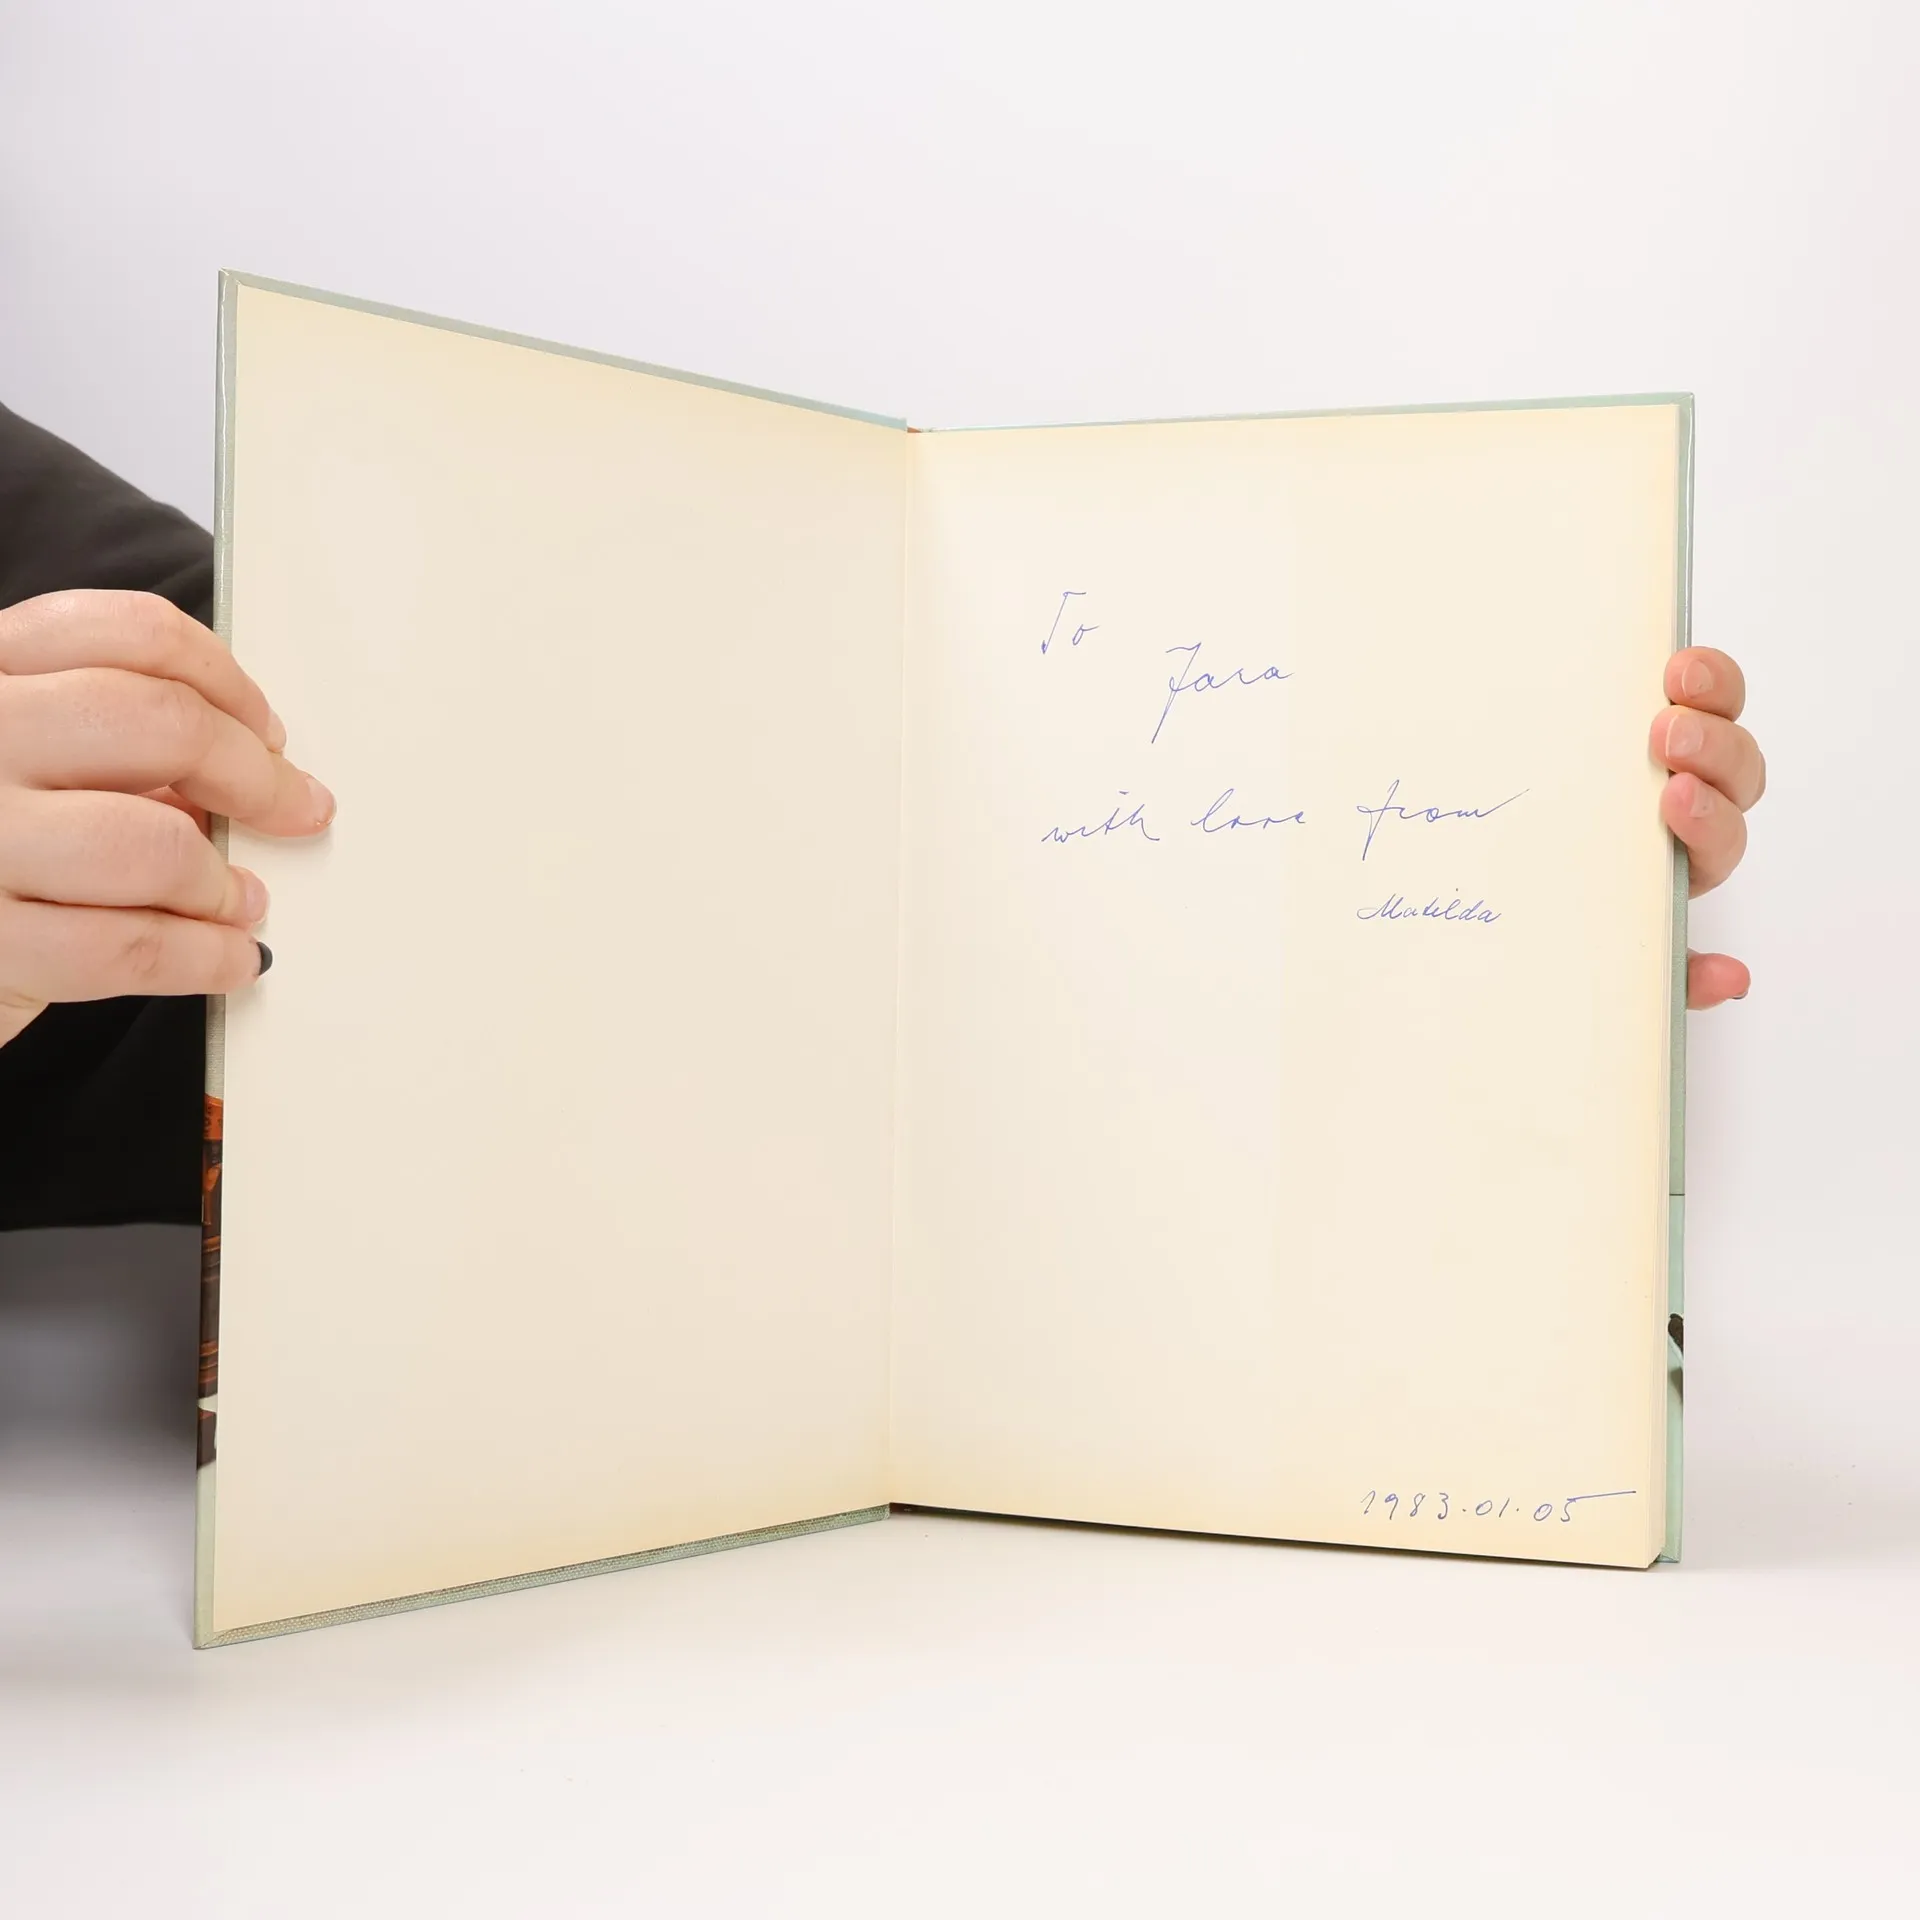 To
Jara
with love from
Matilda
1983.01.05